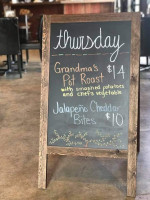 thursday
Grandma's
Pot Roast $14
with smashed potatoes
and chef's vegetable
Jalapeño Cheddar
Bites $10